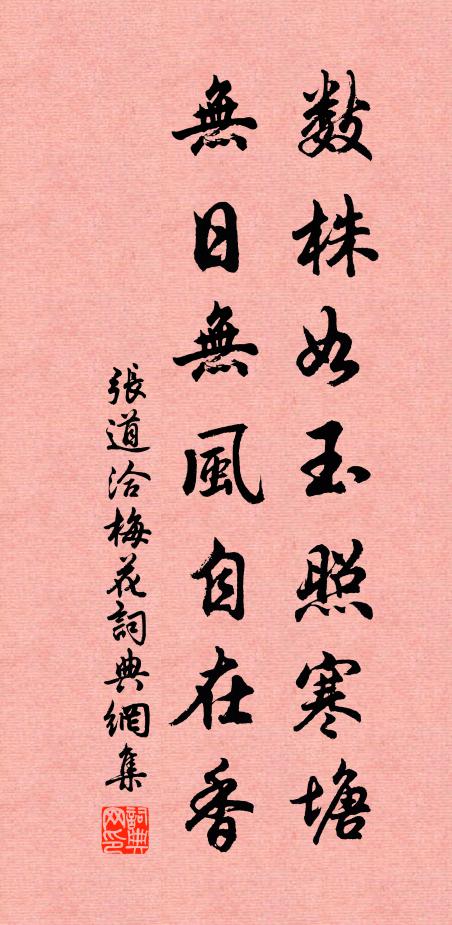 數株如玉照寒塘
無日無風自在香
張道洽梅花詞典網集
詞典网印